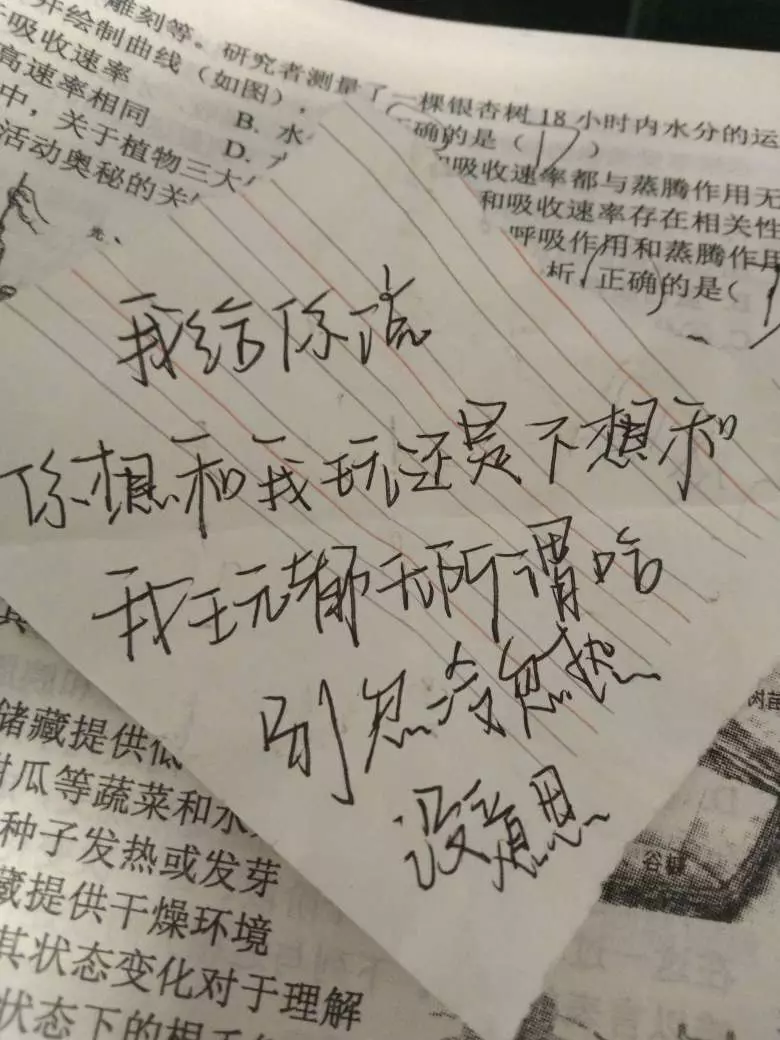 雕刻等。研究者测量了一棵银杏树18小时内水分的运
并绘制曲线（如图），
确的是（D）
吸收速率
B. 水
吸收速率都与蒸腾作用无
高速率相同
D.
和吸收速率存在相关性
中，关于植物三大
呼吸作用和蒸腾作用
活动奥秘的关
析，正确的是（
光、
我给你说
你想和我玩还是不想和
我玩都无所谓哈
别忽冷忽热
没意思
储藏提供低
甜瓜等蔬菜和水
种子发热或发芽
藏提供干燥环境
其状态变化对于理解
状态下的根毛
树苗